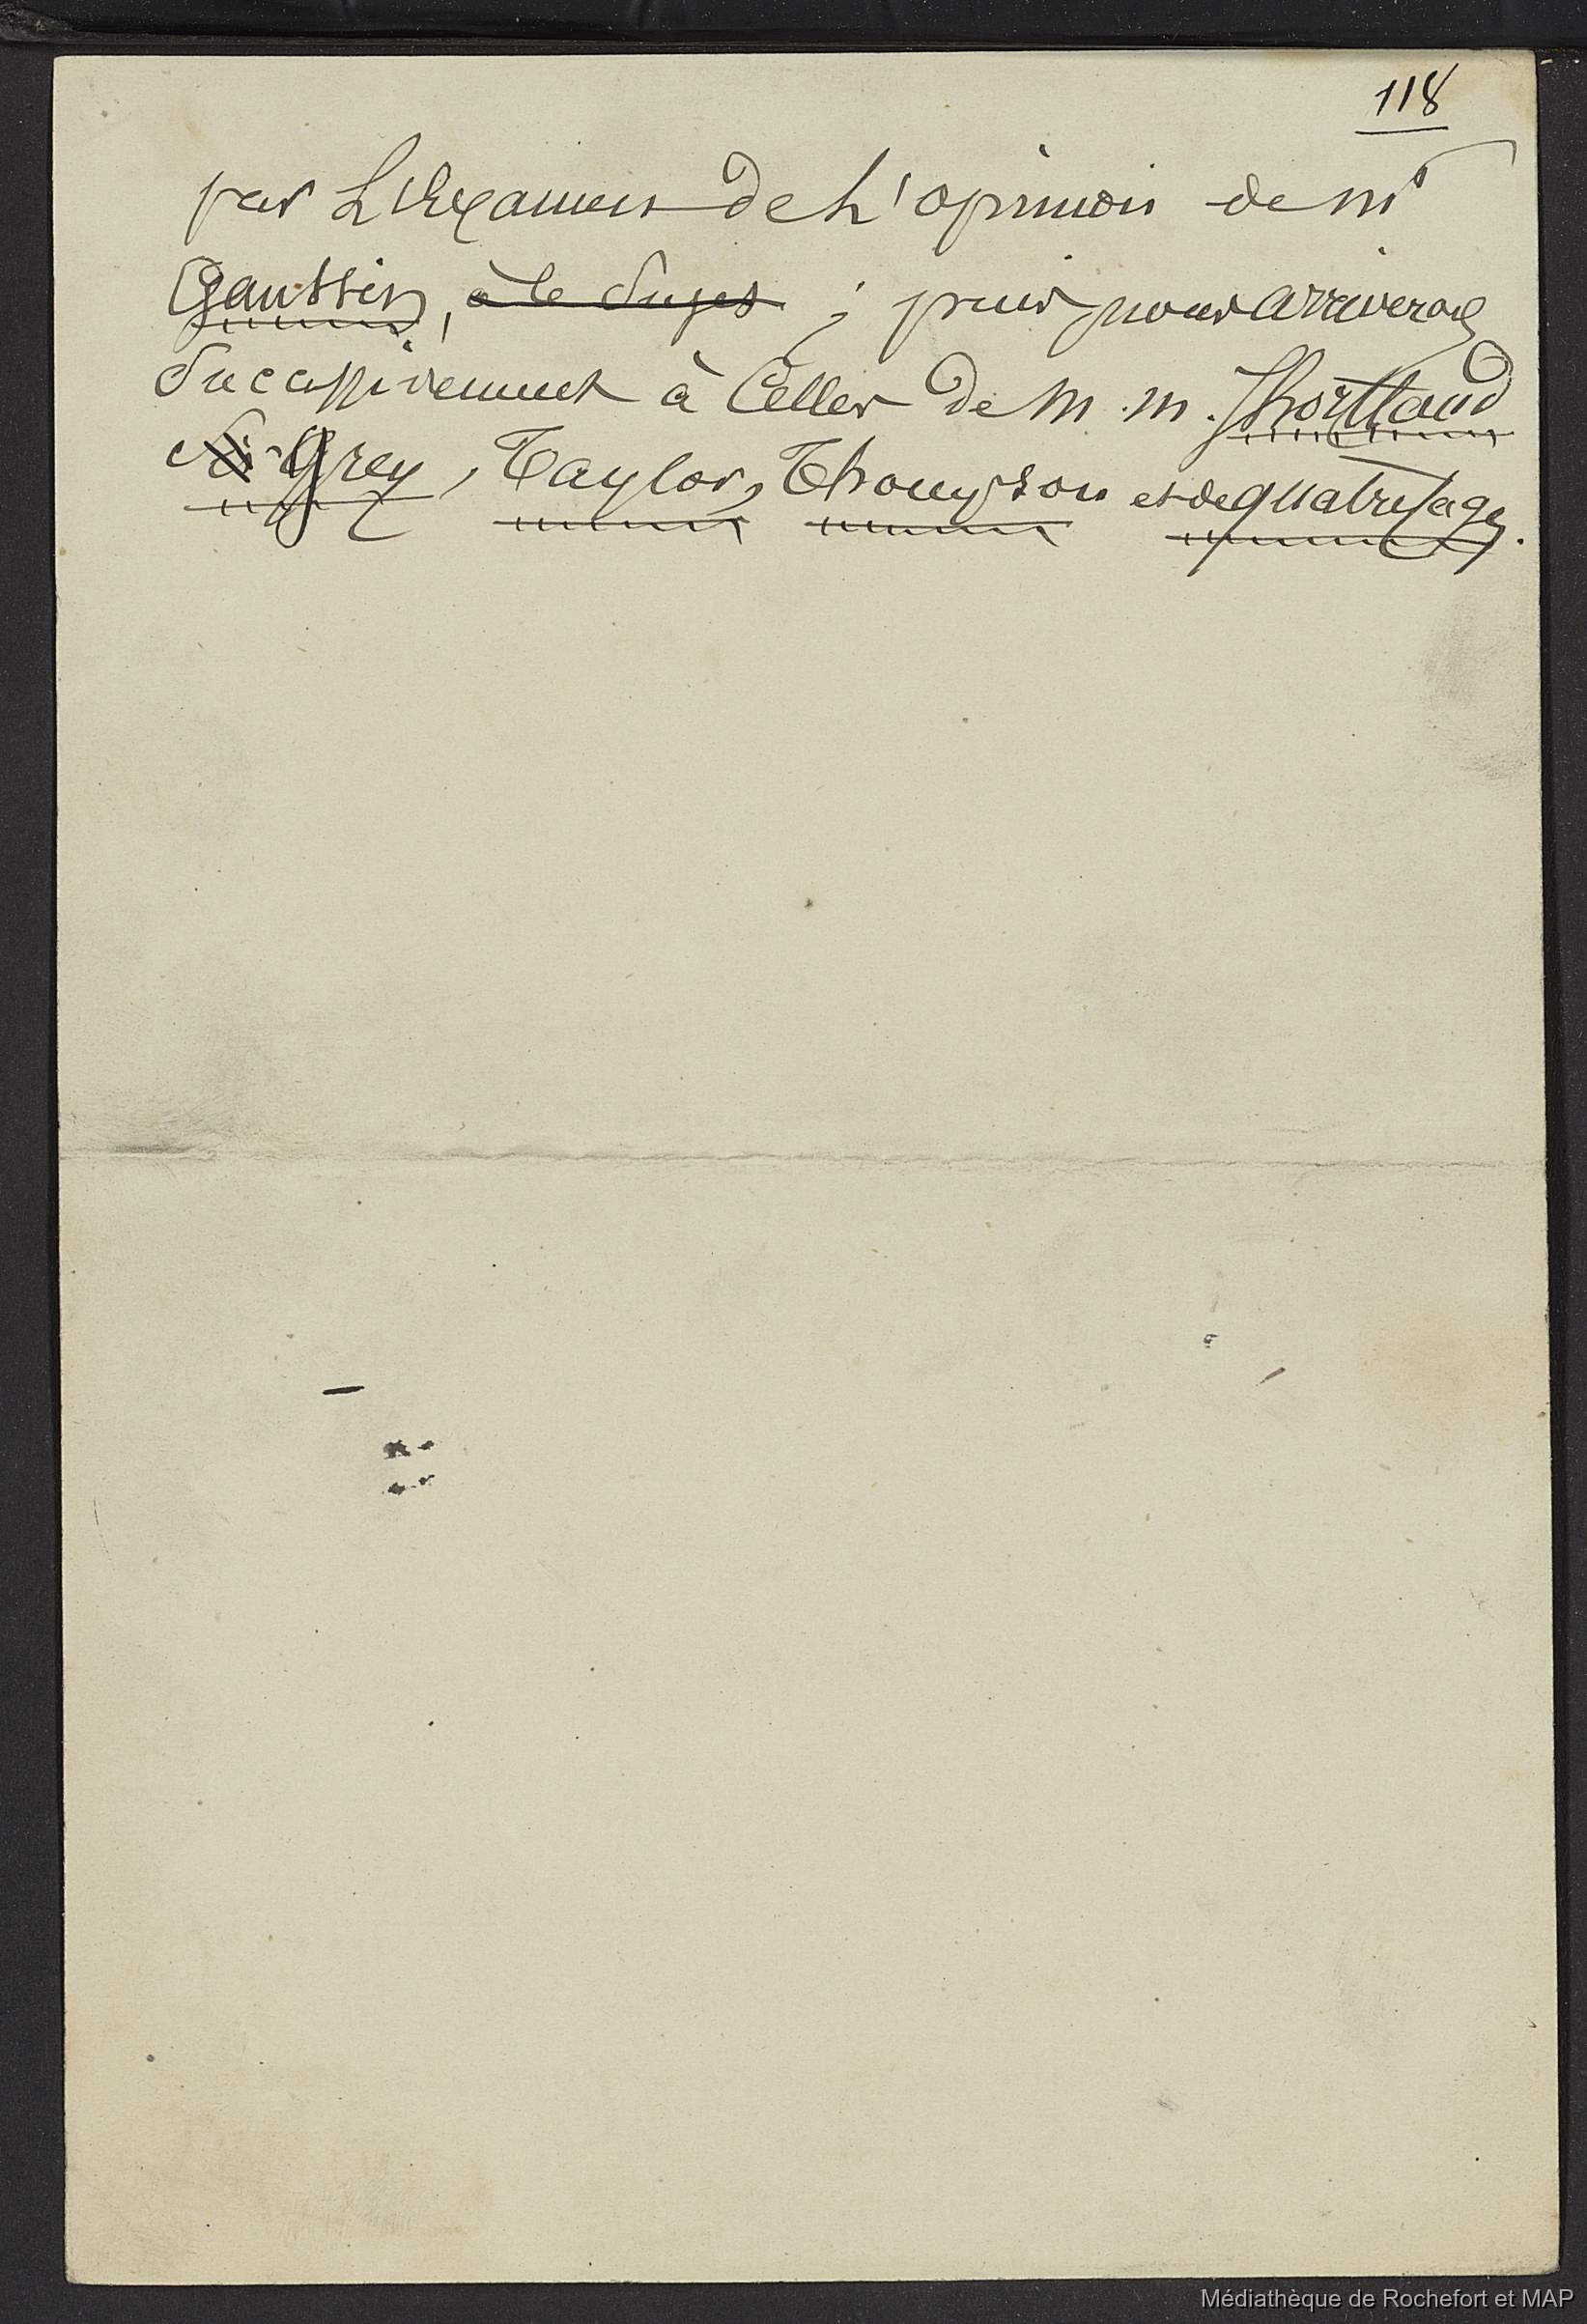 118
par L'Examen de L'opinion de Mr
Gaussin, à ce sujet ; puis nous arriverons
successivement à Celles de M.M. Shortland
Grey, Taylor, Thompson et de quatrefages.
Médiathèque de Rochefort et MAP